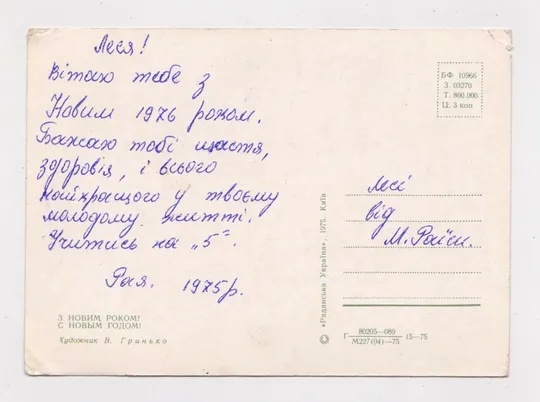 Леся!
Вітаю тебе з
Новим 1976 роком.
Бажаю тобі щастя,
здоровія, і всього
найкращого у твоєму
молодому житті.
Учитись на „5".
Рая. 1975р.
З НОВИМ РОКОМ!
С НОВЫМ ГОДОМ!
Художник В. Гринько
© «Радянська Україна», 1975, Київ
БФ 10966
З. 03270
Т. 860.000
Ц. 3 коп
Лесі
від
М. Раїси.
Г 80205—089 15—75
М227(04)—75